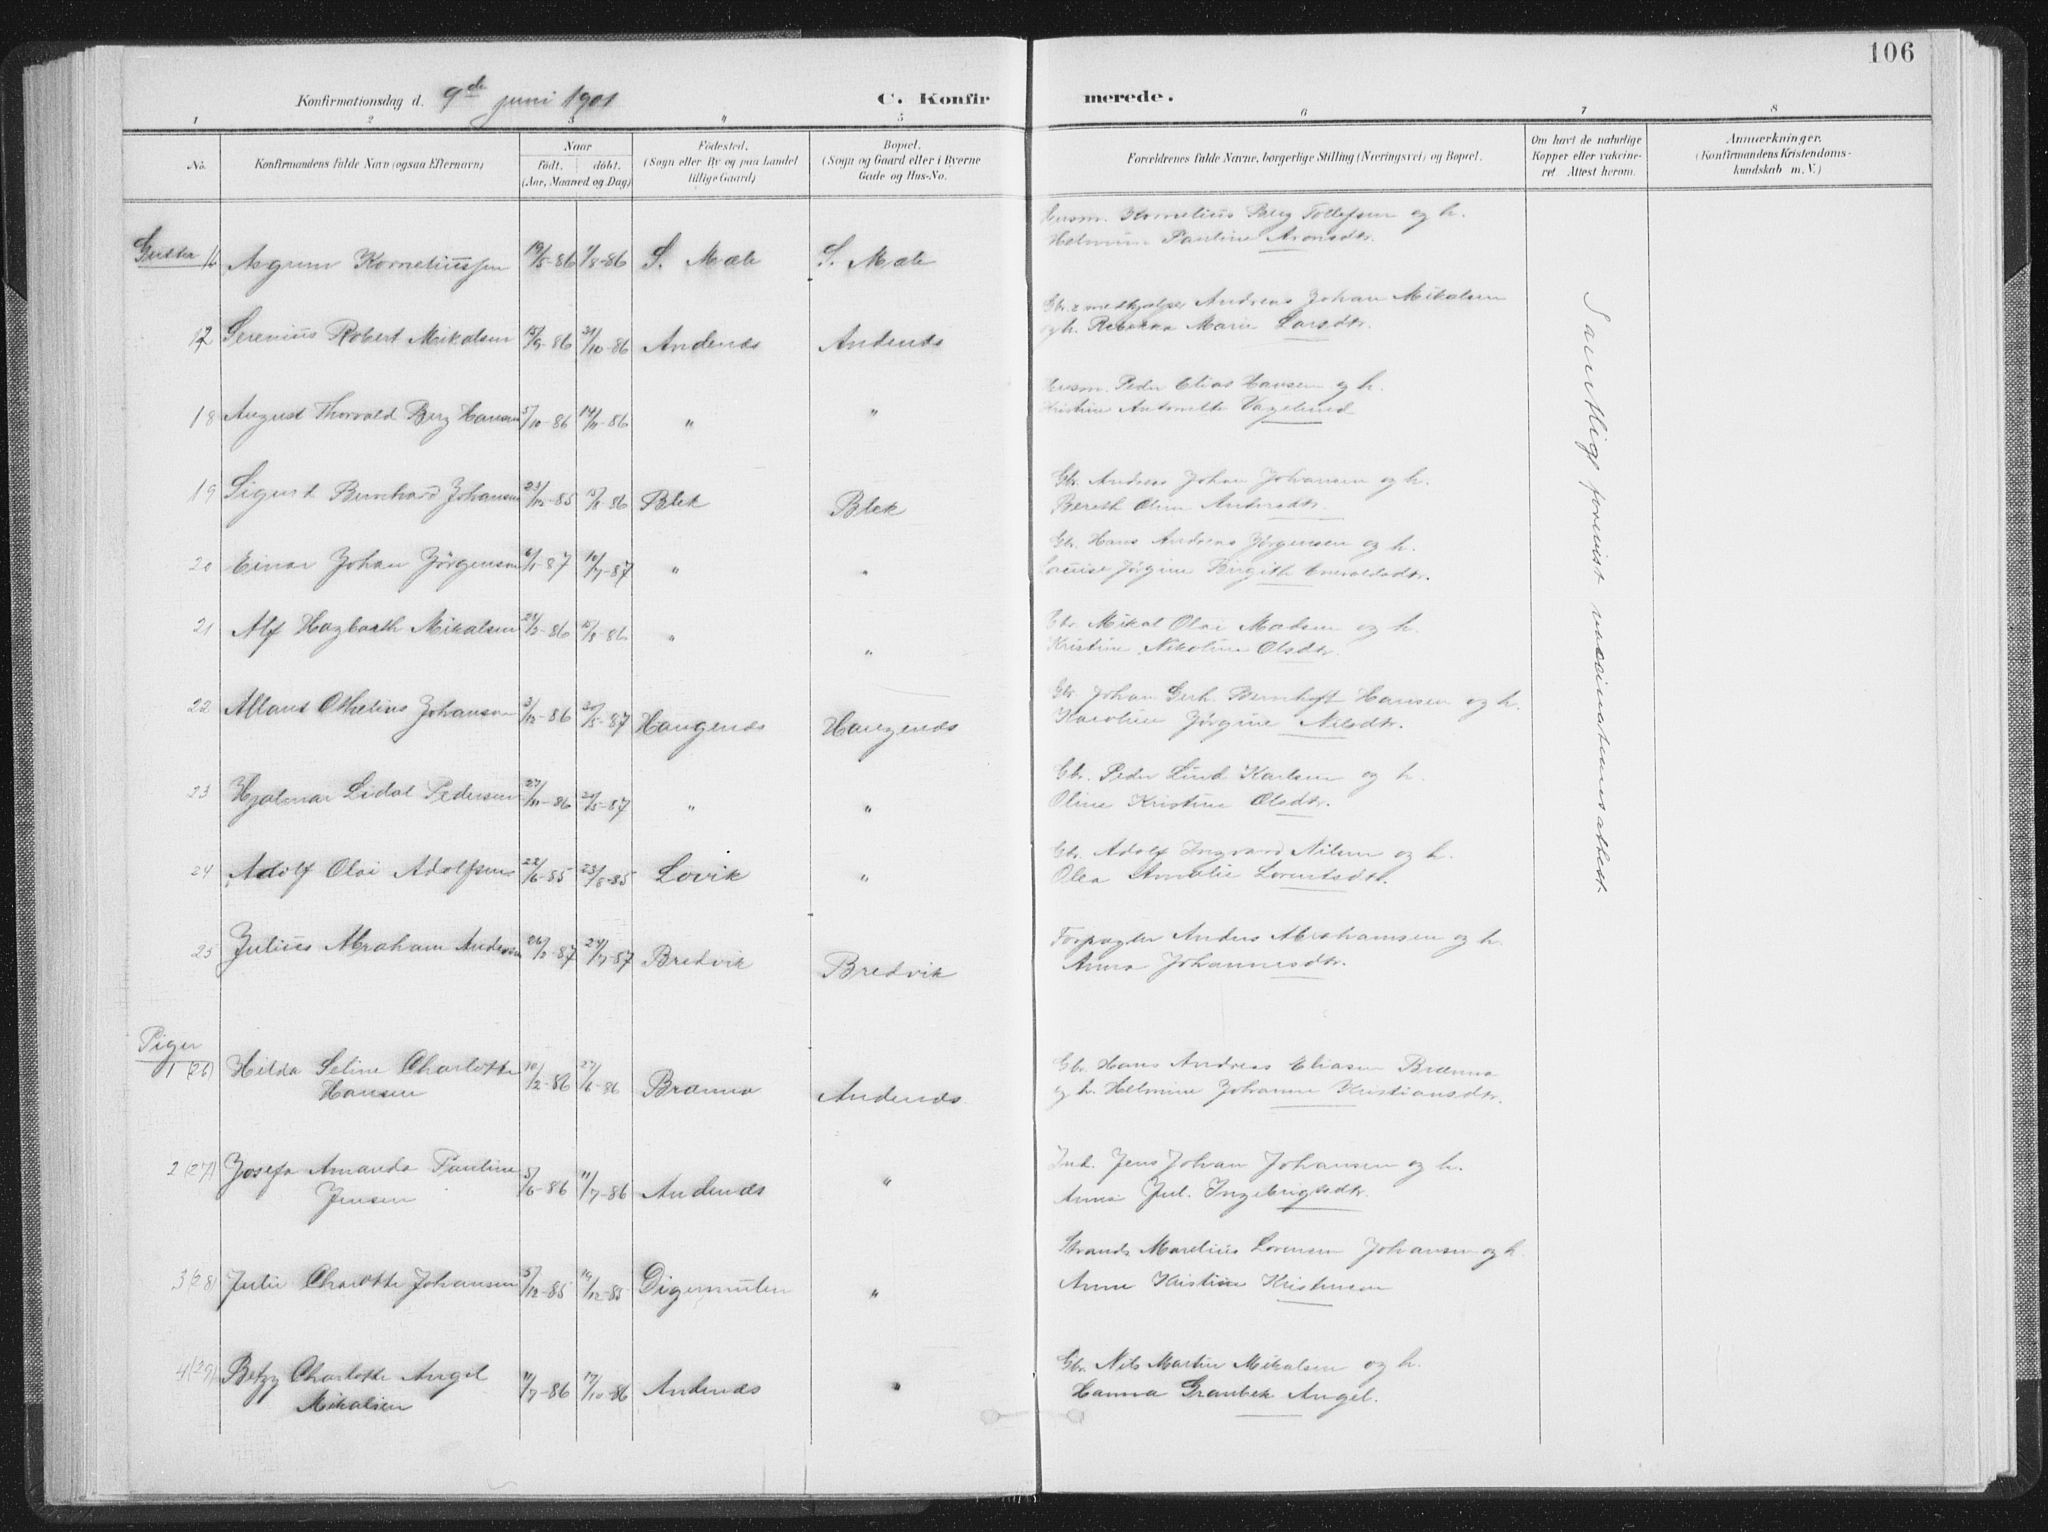 106
Konfirmationsdag d. 9de juni 1901
C. Konfirmerede.
1 2 3 4 5 6 7 8
No. Konfirmandens fulde Navn (ogsaa Efternavn) Naar født. døbt. (Aar, Maaned og Dag) Fødested. (Sogn eller By og paa Landet tillige Gaard) Bopæl. (Sogn og Gaard eller i Byerne Gade og Hus-No. Forældrenes fulde Navne, borgerlige Stilling (Næringsvei) og Bopæl. Om havt de naturlige Kopper eller vakcineret Attest herom. Anmærkninger. (Konfirmandens Kristendomskundskab m. V.)
Gutter
16 Asgrim Korneliussen 19/5-86 1/8-86 S. Mæle S. Mæle Husm. Kornelius Berg Tollefsen og h.
Helmine Pauline Aronsdtr.
17 Serenius Robert Mikalsen 15/9-86 31/10-86 Andenæs Andenæs Gbr. & medhjælper Andreas Johan Mikalsen
og h. Rebekka Marie Larsdtr.
18 August Thorvald Berg Hansen 5/10-86 14/11-86 " " Husm. Peder Elias Hansen og h.
Kristine Antonette Vagelund
19 Sigurd Bernhard Johansen 23/12-85 Blek Blek Gbr. Andreas Johan Johansen og h.
Bereth Olina Andersdtr.
20 Einar Johan Jørgensen 6/1-87 10/7-87 " " Gbr. Hans Andreas Jørgensen og h.
Louise Jørgine Birgithe
21 Alf Hagbarth Mikalsen 15/8-86 " " Gbr. Mikal Olai Madsen og h.
Kristine Nikoline Olsdtr.
22 Othelius Johansen 3/12-86 Haugenæs Haugenæs Gbr. Johan Gerh. Bernhoft Hansen og h.
Karoline Jørgine Nilsdtr.
23 Hjalmar Lidal Pedersen 27/11-86 " " Gbr. Peder Lind Karlsen og h.
Oline Kristine Olsdtr.
24 Adolf Olai Adolfsen 22/6-85 23/8-85 Lovik " Gbr. Adolf Ingvard Nilsen og h.
Olea Amalie Lorentsdtr.
25 Julius Abraham Andersen 26/2-87 24/7-87 Bredvik Bredvik Forpagter Anders Abrahamsen og h.
Anna Johannesdtr.
Samtlige forevist vaccinationsattest.
Piger
1 (26) Hilda Seline Charlotte
Hansen 10/2-86 27/6-86 Brænna Andenæs Gbr. Hans Andreas Eliasen Brænna
og h. Helmine Johanne Kristiansdtr.
2 (27) Josefa Amanda Pauline
Jensen 5/6-86 11/7-86 Andenæs " Ind. Jens Johan Johansen og h.
Anna Jul. Ingebrigtsdtr.
3 (28) Julie Charlotte Johansen 5/12-85 19/12-85 Digermulen " Strands. Marelius Lorensen Johansen og h.
Anne Kristine Kristensen
4 (29) Betzy Charlotte Angel
Mikalsen 11/7-86 17/10-86 Andenæs " Gbr. Nils Martin Mikalsen og h.
Hanna Grambek Angel.